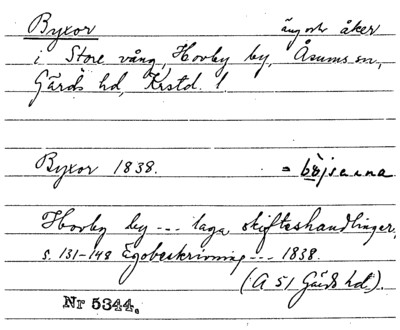 Byxor äng och åker
i Store vång, Hovby by, Åsums sn,
Gärds hd, Krstd. l
Byxor 1838. = böjsenna
Hovby by --- laga skifteshandlinger,
s. 131-148 Egobeskrivning --- 1838.
(A 51 Gärds hd).
Nr 5344.